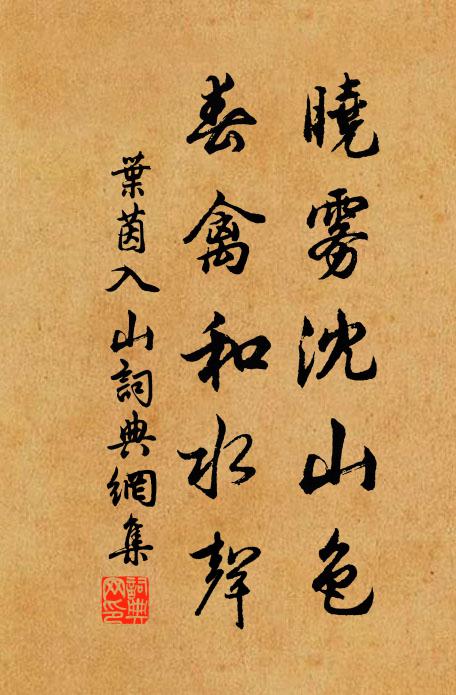 曉雾沈山色
春禽和水聲
葉茵入山詞典網集
詞典网印